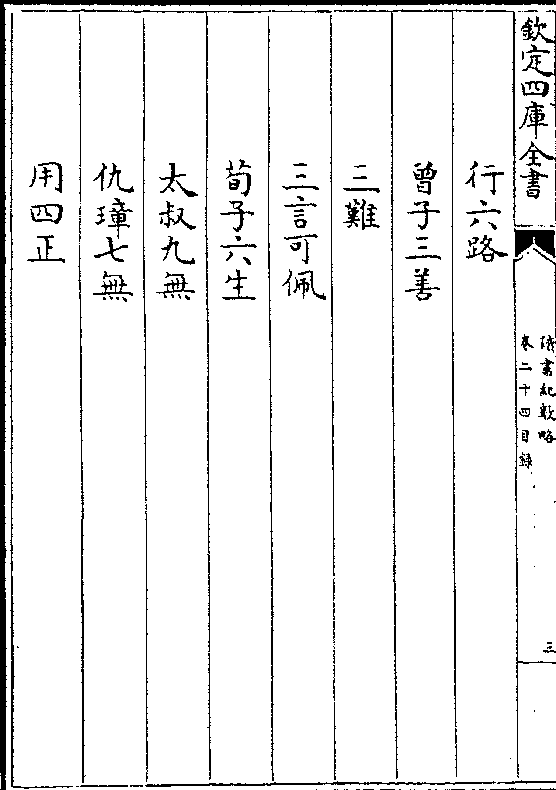 欽定四庫全書
讀書紀數略
卷二十四目録
三
行六路
曾子三善
三難
三言可佩
荀子六生
太叔九無
仇璋七無
用四正